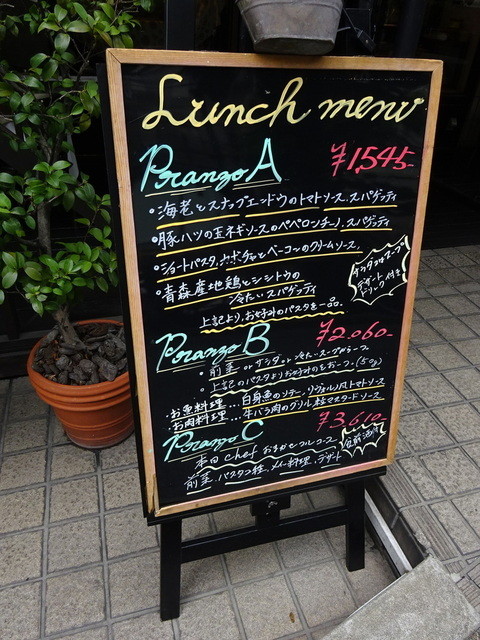 Lunch menu
Pranzo A ¥1,545-
・海老とスナップエンドウのトマトソース、スパゲッティ
・豚ハツの玉ネギソースのペペロンチーノ、スパゲッティ
・ショートパスタ、カボチャとベーコンのクリームソース。
・青森産地鶏とシシトウの
冷たいスパゲッティ
上記より、お好みのパスタを一品。
サラダ又はスープ
デザート
ドリンク付き
Pranzo B ¥2,060-
・前菜 or サラダ or 冷たいスープから一つ
・上記のパスタよりお好みのを お一つ。(50g)
・お魚料理…白身魚のソテー、リヴォルノ風トマトソース
・お肉料理…牛バラ肉のグリル 粒マスタードソース
Pranzo C ¥3,610-
本日 chef おまかせフルコース
前菜、パスタ2種、メイン料理、デザート